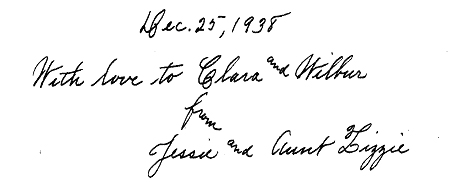 Dec. 25, 1938
With love to Clara and Wilbur
from
Jessie and Aunt Lizzie